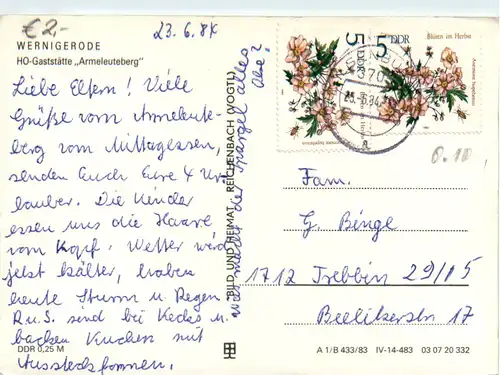 €2-
23.6.84
WERNIGERODE
HO-Gaststätte „Armeleuteberg"
Liebe Eltern! Viele
Grüße vom Armeleute-
berg vom Mittagessen,
senden Euch Eure 4 Ur-
lauber. Die Kinder
essen uns die Haare
vom Kopf. Wetter wird
jetzt kälter, haben
heute Sturm u. Regen
R.u.S. sind bei Keks u.
backen Kuchen mit
Ausstechformen.
macht der Spargel alles
DDR 0,25 M
BILD UND HEIMAT REICHENBACH (VOGTL)
5 DDR
5 DDR
Blüten im Herbst
370
23.6.84
a
0.10
Fam.
G. Binge
1712 Trebbin 29/15
Beelitzerstr 17
A 1/B 433/83 IV-14-483 03 07 20 332